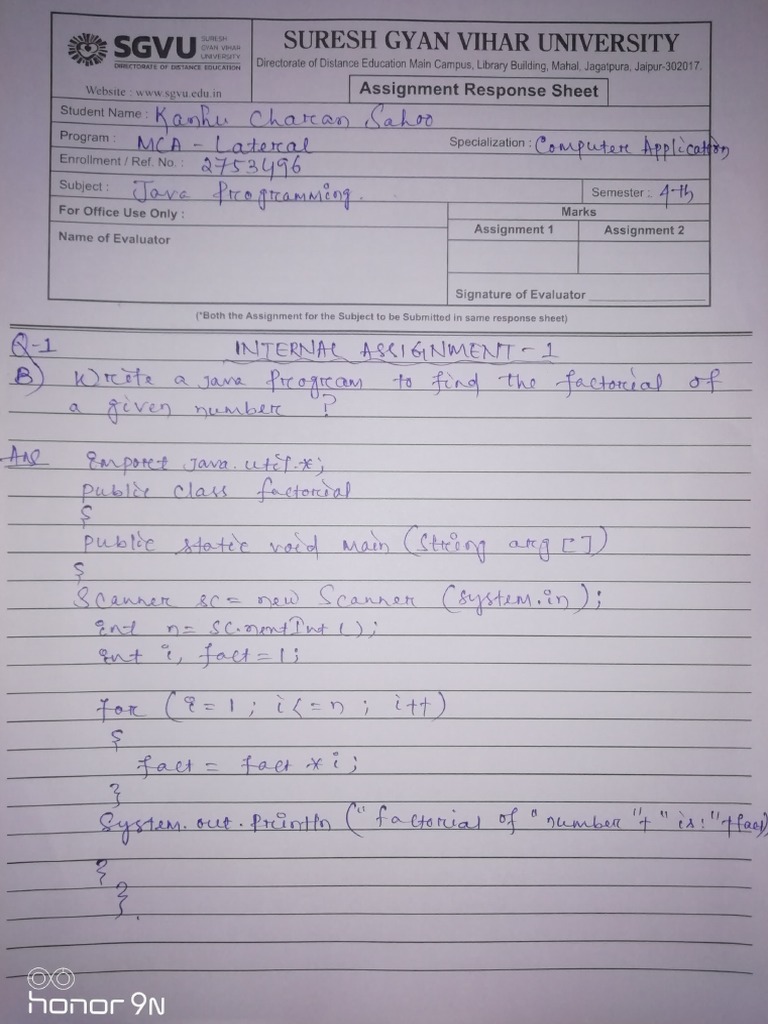 SGVU SURESH GYAN VIHAR UNIVERSITY
DIRECTORATE OF DISTANCE EDUCATION
Website : www.sgvu.edu.in
SURESH GYAN VIHAR UNIVERSITY
Directorate of Distance Education Main Campus, Library Building, Mahal, Jagatpura, Jaipur-302017.
Assignment Response Sheet
Student Name : Kanhu Charan Sahoo
Program : MCA - Lateral Specialization : Computer Application
Enrollment / Ref. No. : 2753496
Subject : Java Programming. Semester : 4-th
For Office Use Only : Marks
Name of Evaluator Assignment 1 Assignment 2
Signature of Evaluator
(*Both the Assignment for the Subject to be Submitted in same response sheet)
Q-1 INTERNAL ASSIGNMENT - 1
B) Write a java Program to find the factorial of
a given number ?
Ans import java.util.*;
public class factorial
{
public static void main (String arg [])
{
Scanner sc = new Scanner (system.in);
int n = sc.nextInt ();
int i, fact = 1;
for (i = 1 ; i <= n ; i++)
{
fact = fact * i ;
}
System.out.println ("factorial of "number "+ " is: "+fact)
}
}.
honor 9N